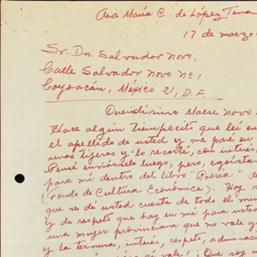 Ana María C. de López Tena
17 de marzo
Sr. Dn. Salvador Novo.
Calle Salvador Novo Nº 1
Coyoacán, México 21, D.F.
Queridísimo Maese Novo.
Hace algún tiempecito que leí en
el apellido de usted y me paré en
unas tijeras y lo recorté, con interés,
Pensé enviárselo luego, pero, egoísta
para mí dentro del libro "Poesía" de
(Fondo de Cultura Económica). Hoy
que se dé usted cuenta de todo el mu
y de respeto que hay en mí para uste
una mujer provinciana que no vale
y la ternura, interés, respeto, admirac
vale! Que soy